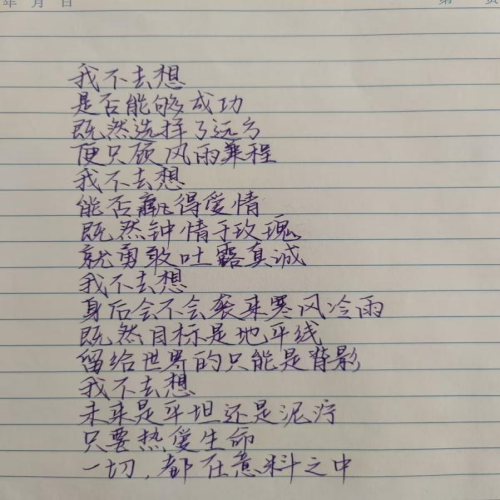 年 月 日 第 页
我不去想
是否能够成功
既然选择了远方
便只顾风雨兼程
我不去想
能否赢得爱情
既然钟情于玫瑰
就勇敢吐露真诚
我不去想
身后会不会袭来寒风冷雨
既然目标是地平线
留给世界的只能是背影
我不去想
未来是平坦还是泥泞
只要热爱生命
一切,都在意料之中